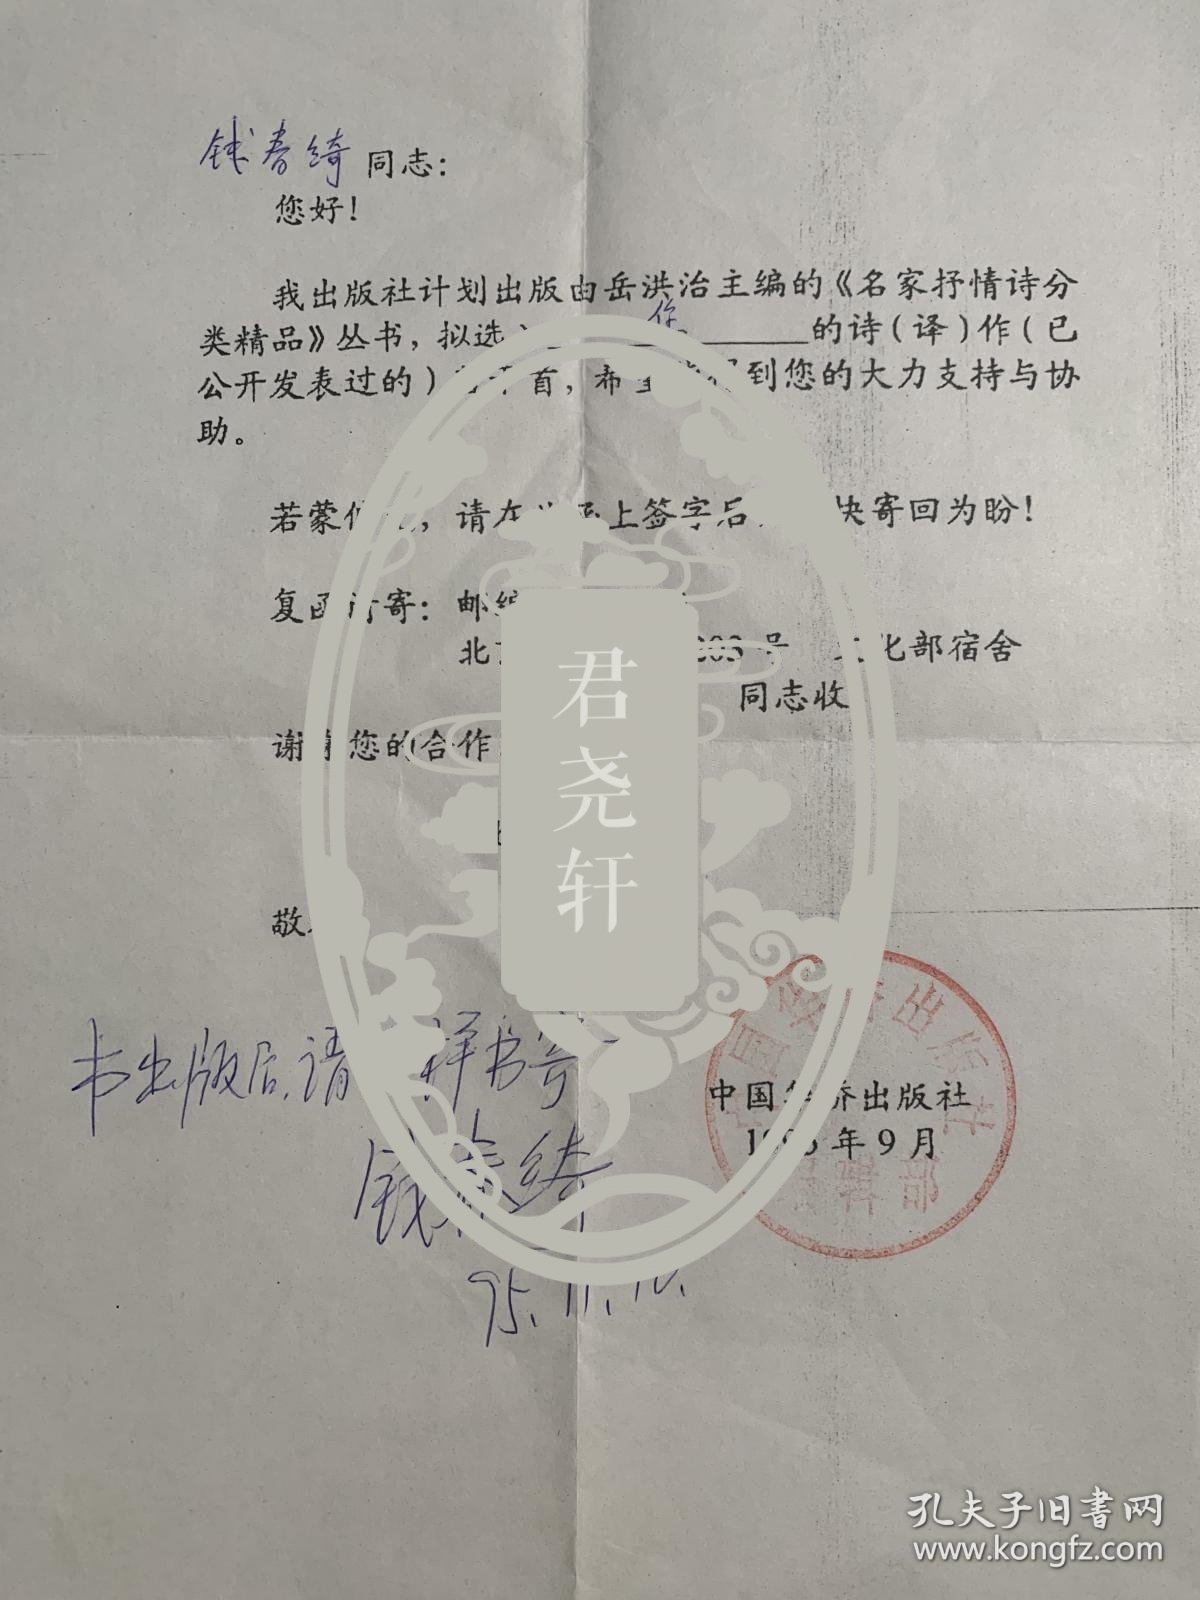 钱春绮 同志：
您好！
我出版社计划出版由岳洪治主编的《名家抒情诗分
类精品》丛书，拟选 您 的诗（译）作（已
公开发表过的） 首，希 到您的大力支持与协
助。
若蒙 ，请在 上签字后 快寄回为盼！
复函 寄：邮编
北 203号 文化部宿舍
同志收
谢谢您的合作
敬
书出版后，请 样书寄
钱春绮
95.11.10.
中国华侨出版社
1995年9月
中国华侨出版社
编辑部
君尧轩
孔夫子旧书网
www.kongfz.com